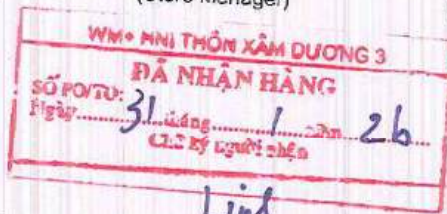 (Store Manager)
WM+ HNI THÔN XÂM DƯƠNG 3
ĐÃ NHẬN HÀNG
SỐ PO/TO:
Ngày 31 tháng 1 năm 26
Chữ ký người nhận
Linh